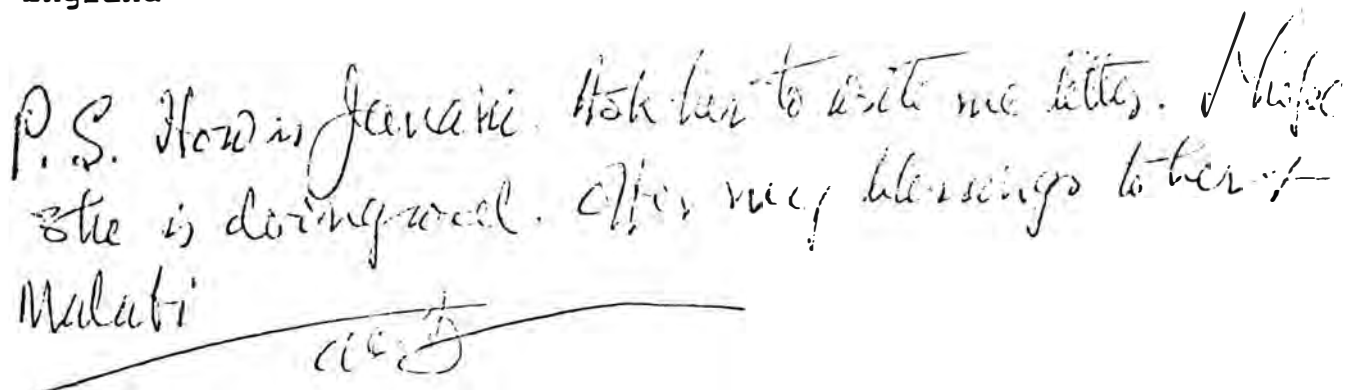 England
P.S. How is Janaki. Ask her to write me letter. I hope
she is doing well. Offer my blessings to her &
Malati